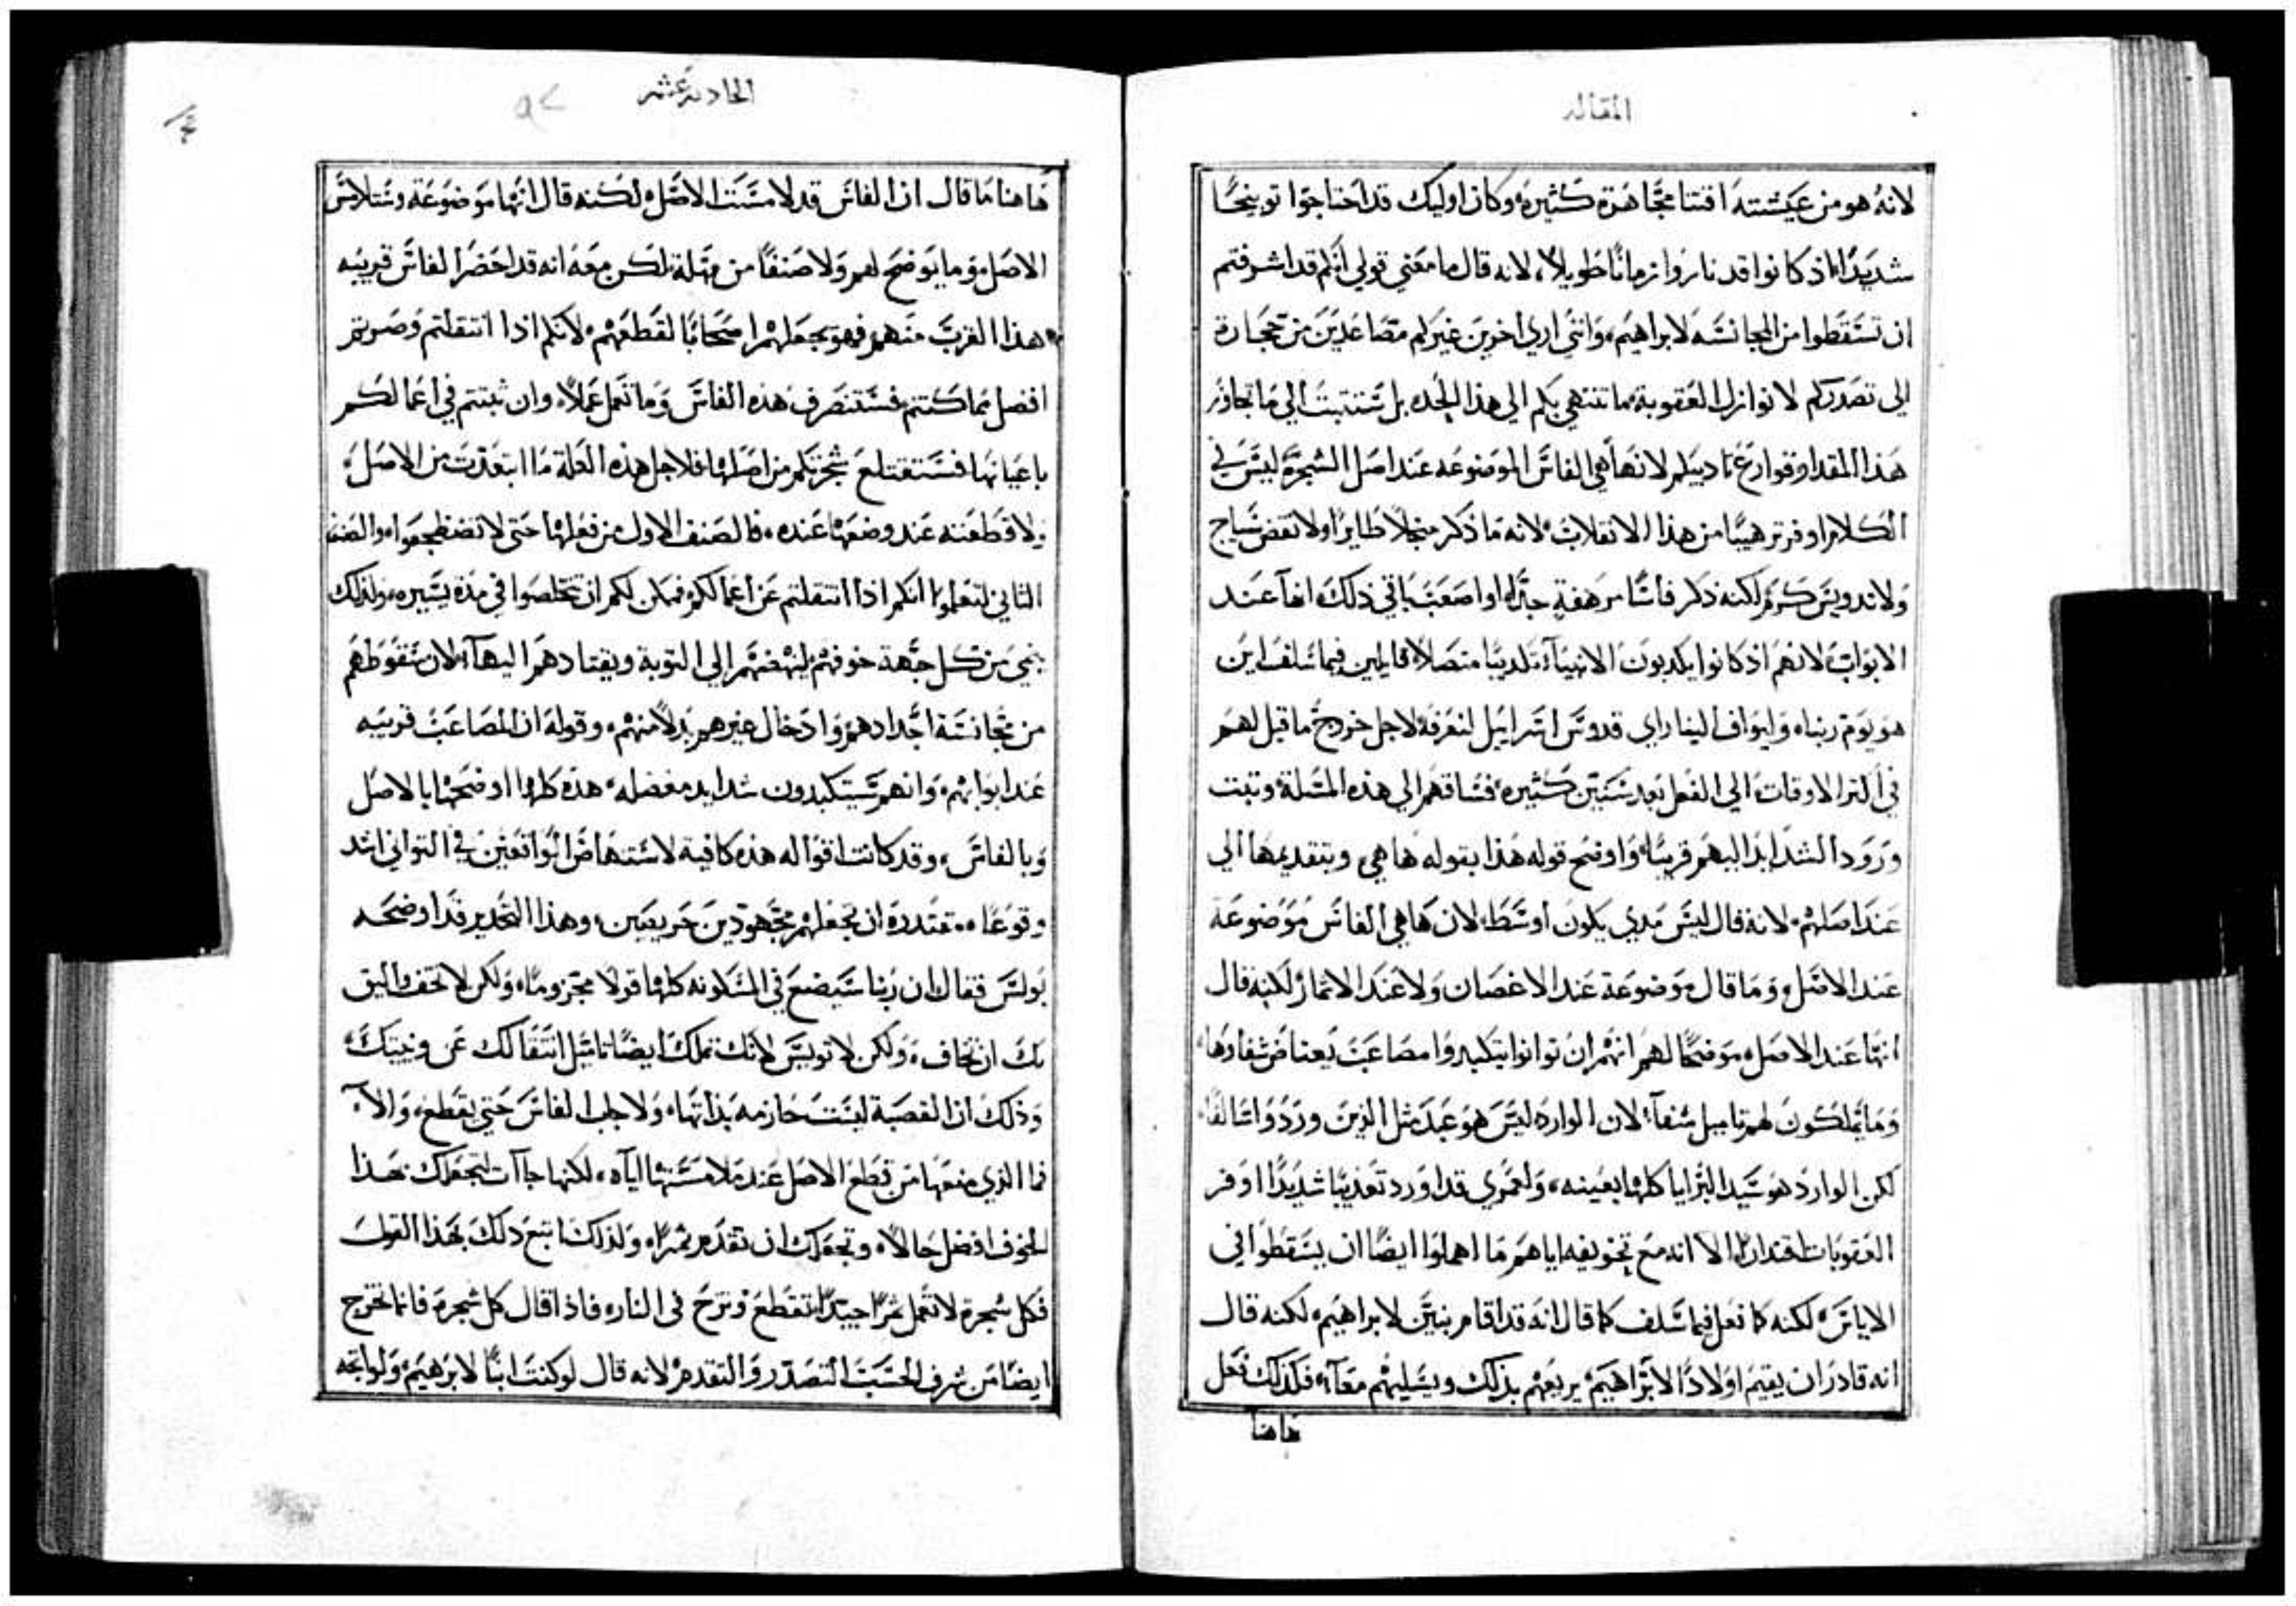 المقاله
لانه هو من عيشته اقتنا مجاهرة كثيره وكان اوليك قد احتاجوا توبيخا
شديدا اذ كانوا قد ناروا زمانا طويلا، لانه قال ما معني قولي انكم قد اشرفتم
ان تسقطوا من المجانسه لابراهيم، وانني اري اخرين غيركم متصاعدين من حجارة
الي تصدركم لا نوازل العقوبة ما تنتهي بكم الي هذا الحد بل ستثبت الي ما تجاوز
هذا المقدار قوارع تاديبكم لانها هي الفاس الموضوعه عند اصل الشجرة ليس في
الكلام اوفر ترهيبا من هذا الانقلاب لانه ما ذكر منجلا طايرا ولا نقض سياج
ولا تدويس كرم لكنه ذكر فاسا مرهفة جدا واصعب باقي ذلك انها عند
الابواب لانهم اذ كانوا يكدبون الانبيآ تكديبا متصلا قايلين فيما سلف اين
هو يوم ربنا، وليواف الينا راي قدوس اسراييل لنعرفه لاجل خروج ما قيل لهم
في اكثر الاوقات الي الفعل بعد سنين كثيره، فساقهم الي هذه المسلة، وتبت
ورود الشدايد اليهم قريبا، واوضح قوله هذا بقوله ها هي وبتقديمها الي
عند اصلهم، لانه قال ليس مدي يكون اوسط لان ها هي الفاس موضوعة
عند الاصل، وما قال موضوعة عند الاغصان ولا عند الاثمار لكنه قال
انها عند الاصل، موضحا لهم انهم ان توانوا يتكبدوا مصاعب يعتاض شفاوها
وما يملكون لهم تاميل شفآ، لان الوارد ليس هو عبد مثل الذين وردوا سالفا
لكن الوارد هو سيد البرايا كلها بعينه، ولعمري قد اورد تعذيبا شديدا اوفر
العقوبات اقتدارا، الا انه مع تخويفه اياهم ما اهملوا ايضا ان يسقطوا في
الاياس، لكنه كما فعل فيما سلف كما قال انه قد اقام بنين لابراهيم، لكنه قال
انه قادر ان يقيم اولادا لابراهيم يريعهم بذلك ويسليهم معآ، فكذلك فعل
هاهنا
الحاديه عشر
٩٢
هاهنا ما قال ان الفاس قد لامست الاصل، لكنه قال انها موضوعة وستلامس
الاصل، وما يوضح لهم ولا صنفا من مهلة، لكن معه انه قد احضر الفاس قريبه
هذا القرب منهم فهو يجعلهم اصحابا لقطعهم، لانكم اذا انتقلتم وصرتم
افضل مما كنتم فستنصرف هذه الفاس وما تعمل عملا، وان ثبتتم في اعمالكم
باعيانها فستقتلع شجرتكم من اصلها، فلاجل هذه العلة ما ابتعدت من الاصل،
ولا قطعته عند وضعها عنده، فالصنف الاول من فعلها حتي لا تضطجعوا، والصنف
الثاني لتعلموا انكم اذا انتقلتم عن اعمالكم فيمكن لكم ان تخلصوا في مدة يسيره، ولذلك
ينمي من كل جهة خوفهم لينهضهم الي التوبة ويقتادهم اليهآ، لان سقوطهم
من مجانسة اجدادهم، وادخال غيرهم بدلا منهم، وقوله ان المصاعب قريبه
عند ابوابهم، وانهم سيتكبدون شدايد معضله، هذه كلها اوضحها بالاصل
وبالفاس، وقد كانت اقواله هذه كافية لاستنهاض الواقعين في التواني اشد
وقوعا، مقتدرة ان تجعلهم مجهودين حريصين، وهذا التحدير قد اوضحه
بولس فقال ان ربنا سيضع في المسكونه كلها قولا مجزوما، ولكن لا تخف واليق
بك ان تخاف، ولكن لا توايس لانك تملك ايضا تاميل انتقالك عن وخيتك،
وذلك ان القصبة ليست حازمه بذاتها، ولا جلب الفاس حتي يقطع، والآ
فما الذي منعها من قطع الاصل عند ملامستها اياه، لكنها جآات لتجعلك بهذا
الخوف افضل حالا، وتجعلك ان تقدم ثمرا، ولذلك اتبع ذلك بهذا القول
فكل شجرة لا تعمل ثمرا جيدا تقطع وتزح في النار، فاذا قال كل شجرة فانما تخرج
ايضا من شرف الحسب التصدر والتقدم، لانه قال لو كنت ابنا لابرهيم، ولو اتجه